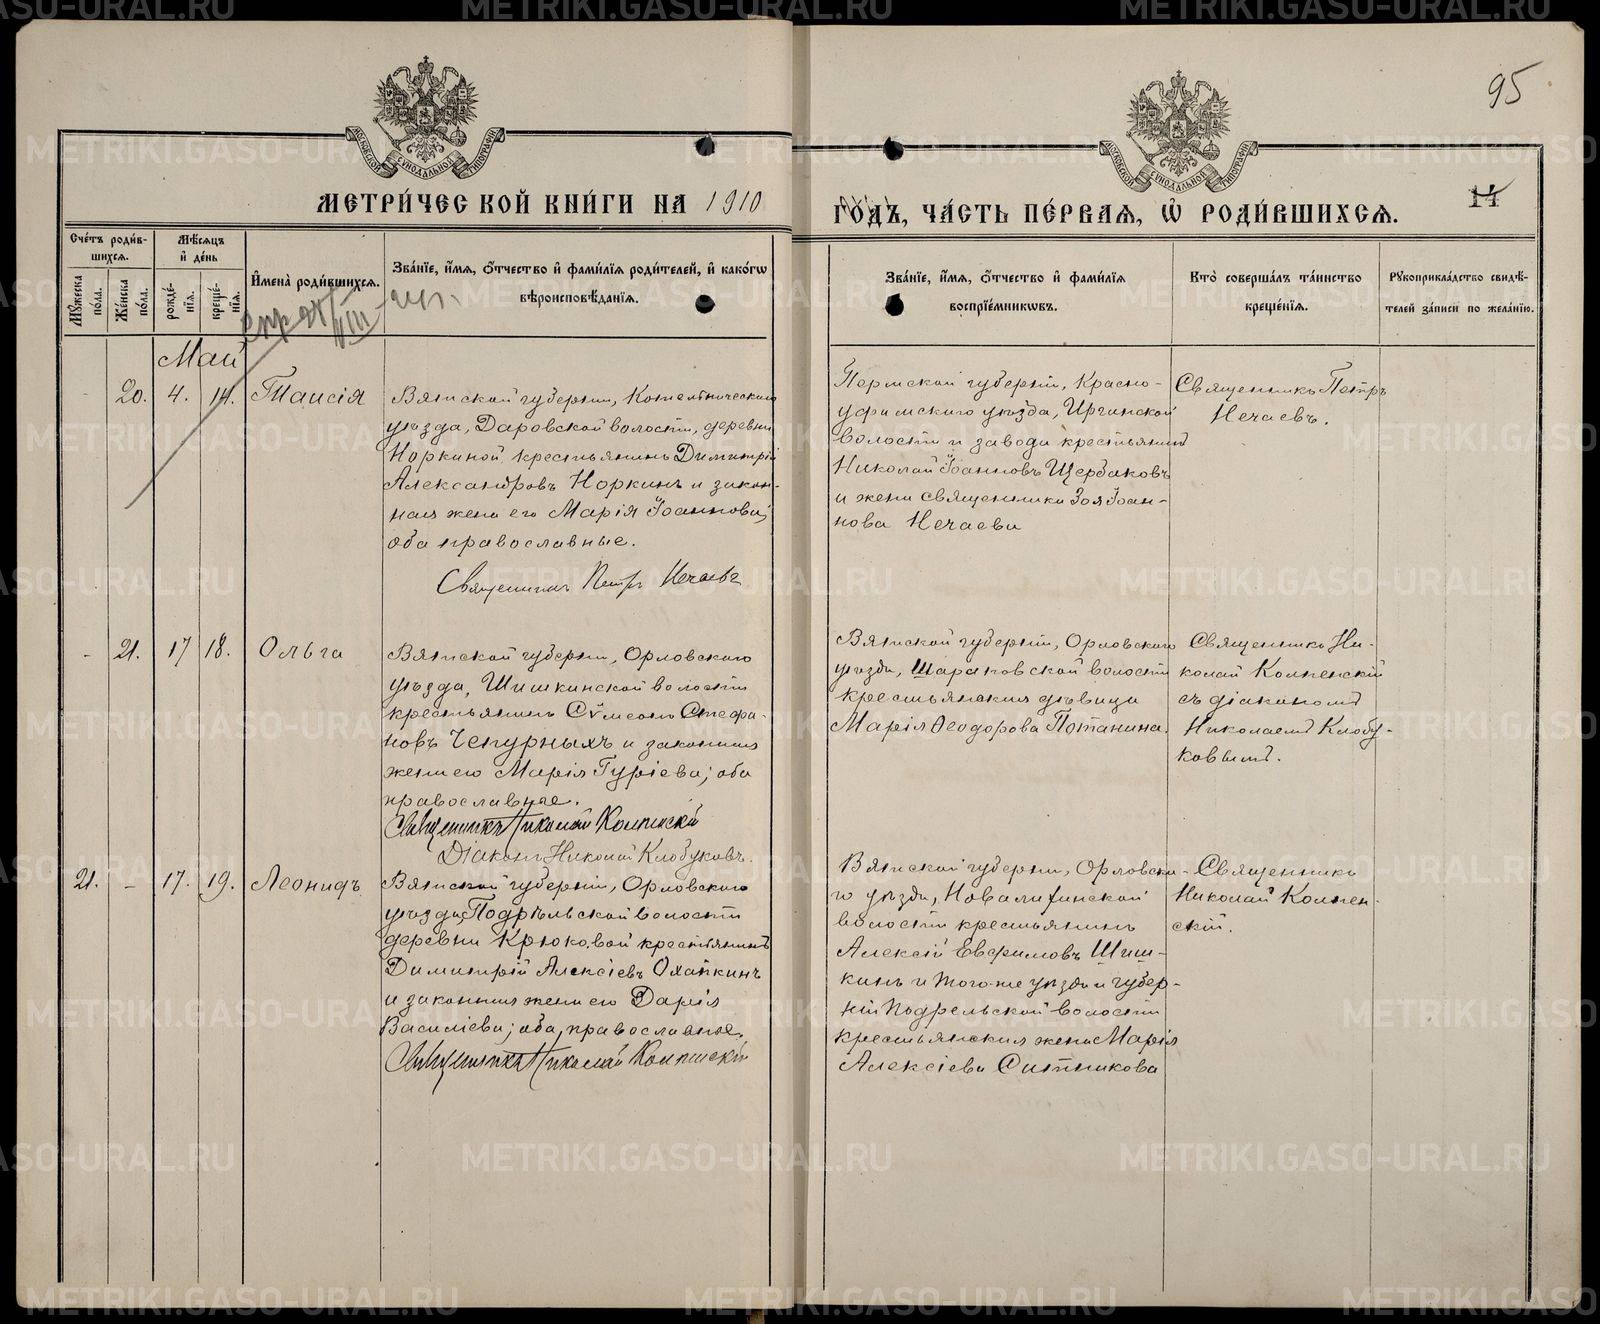 95
МОСКОВСКОЙ СѴНОДАЛЬНОЙ ТИПОГРАФІИ
МОСКОВСКОЙ СѴНОДАЛЬНОЙ ТИПОГРАФІИ
МЕТРИ́ЧЕСКОЙ КНИ́ГИ НА 1910
ГО́ДЪ, ЧА́СТЬ ПЕ́РВАѦ, Ѡ҆ РОДИ́ВШИХСѦ.
14
Сче́тъ роди́в-
шихсѧ.
Мꙋжеска
по́ла.
Же́нска
по́ла.
Мѣ́сѧцъ
и҆ де́нь
рожде́-
нїѧ.
креще́-
нїѧ.
И҆мена̀ роди́вшихсѧ.
Зва́нїе, и҆́мѧ, ѻ҆́тчество и҆ фами́лїѧ роди́телей, и҆ како́гѡ
вѣроисповѣ́данїѧ.
Зва́нїе, и҆́мѧ, ѻ҆́тчество и҆ фами́лїѧ
воспрїе́мникѡвъ.
Кто̀ соверша́лъ та́инство
креще́нїѧ.
Рꙋкоприкла́дство свидѣ́-
телей за́писи по жела́нїю.
Май
- 20. 4. 14. Таисія
Вятской губерніи, Котельническаго
уѣзда, Даровской волости, деревни
Норкиной, крестьянинъ Димитрій
Александровъ Норкинъ и закон-
ная жена его Марія Іоаннова;
оба православные.
Священникъ Петръ Нечаевъ
Пермской губерніи, Красно-
уфимскаго уѣзда, Иргинской
волости и завода крестьянинъ
Николай Іоанновъ Щербаковъ
и жена священника Зоя Іоан-
нова Нечаева
Священникъ Петръ
Нечаевъ.
- 21. 17 18. Ольга
Вятской губерніи, Орловскаго
уѣзда, Шишкинской волости
крестьянинъ Сѵмеонъ Стефа-
новъ Чепурныхъ и законная
жена его Марія Гуріева; оба
православные.
Священникъ Николай Колпенскій
Діаконъ Николай Клобуковъ.
Вятской губерніи, Орловскаго
уѣзда, Шарановской волости
крестьянская дѣвица
Марія Ѳеодорова Потанина.
Священникъ Ни-
колай Колпенскій
съ діакономъ
Николаемъ Клобу-
ковымъ.
21. - 17. 19. Леонидъ
Вятской губерніи, Орловскаго
уѣзда, Подрѣльской волости
деревни Крюковой крестьянинъ
Димитрій Алексіевъ Охапкинъ
и законная жена его Дарія
Василіева; оба православные.
Священникъ Николай Колпенскій
Вятской губерніи, Орловска-
го уѣзда, Новалифинской
волости крестьянинъ
Алексій Евфимовъ Шиш-
кинъ и того-же уѣзда и губер-
ніи Подрельской волости
крестьянская жена Марія
Алексіева Ситникова
Священникъ
Николай Колпен-
скій.
METRIKI.GASO-URAL.RU